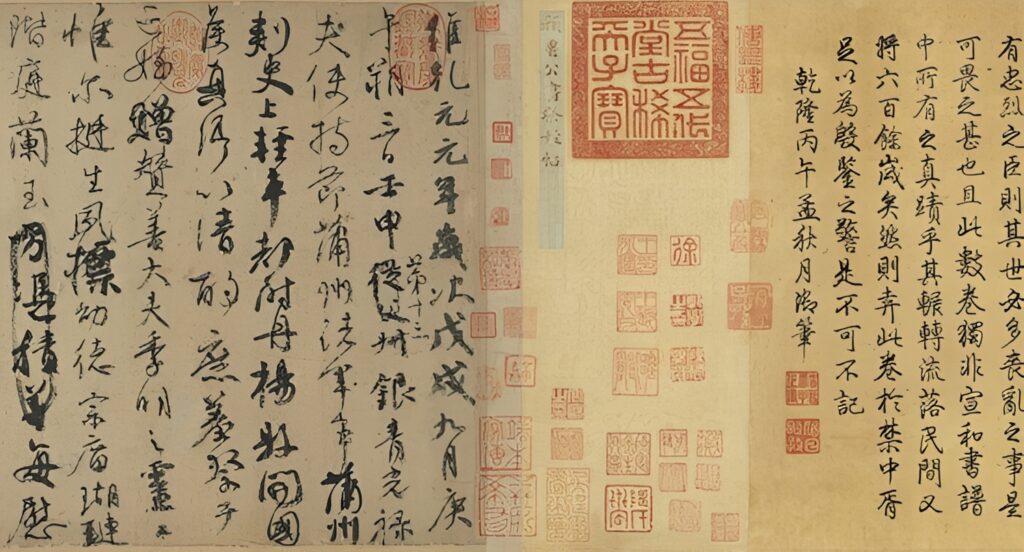 有忠烈之臣則其世必多喪亂之事是
可畏之甚也且此數卷獨非宣和書譜
中所有之真蹟乎其輾轉流落民間又
將六百餘歲矣然則弆此卷於禁中胥
足以為殷鑒之警是不可不記
乾隆丙午孟秋月御筆
五福五代
堂古稀
天子寶
顏魯公書祭姪帖
維乾元元年歲次戊戌九月庚
午朔三日壬申第十三從父叔銀青光祿
夫使持節蒲州諸軍事蒲州
刺史上輕車都尉丹楊縣開國
侯真卿以清酌庶羞祭于
亡姪贈贊善大夫季明之靈曰
惟爾挺生夙標幼德宗廟瑚璉
階庭蘭玉方憑積善每慰